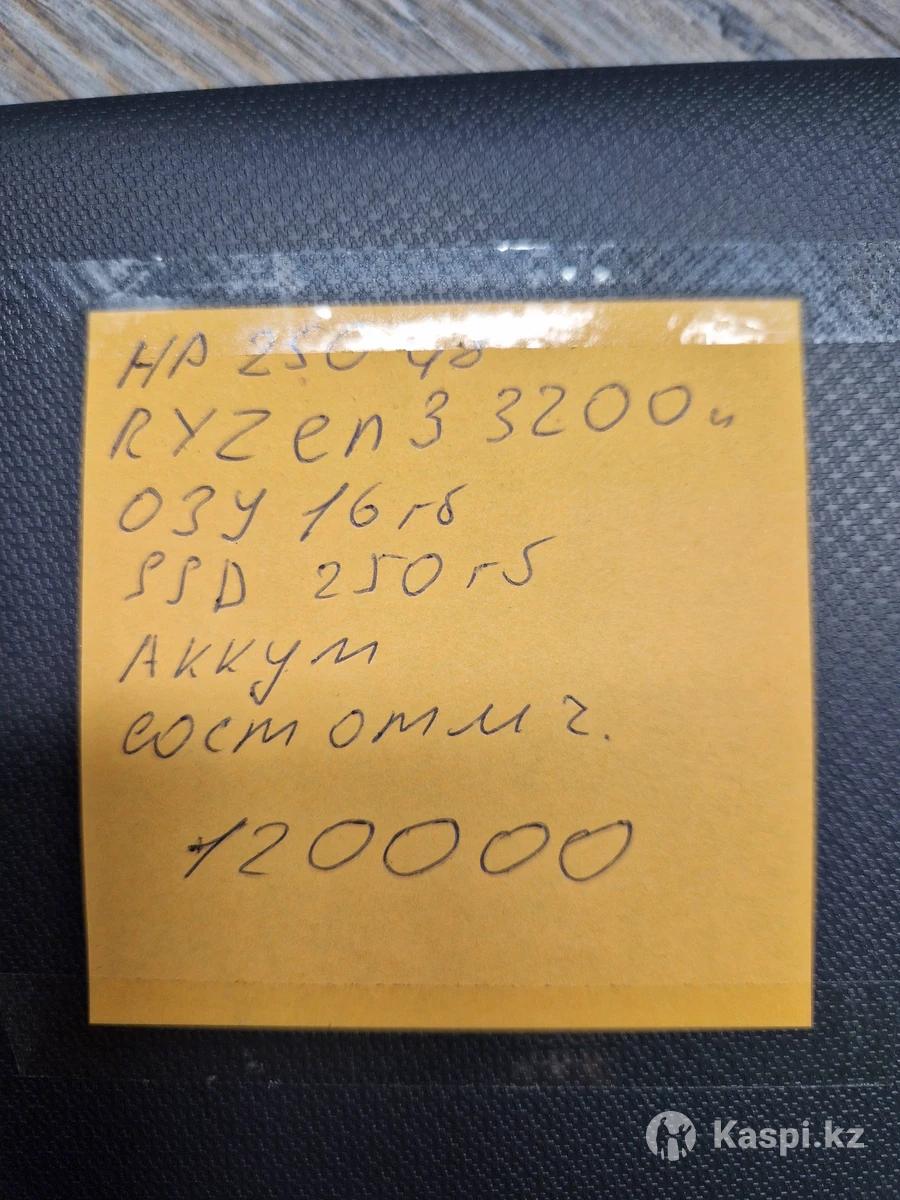 HP 250
RYZen 3 3200u
ОЗУ 16 гб
SSD 250 гб
Аккум
сост отмич.
120000
Kaspi.kz